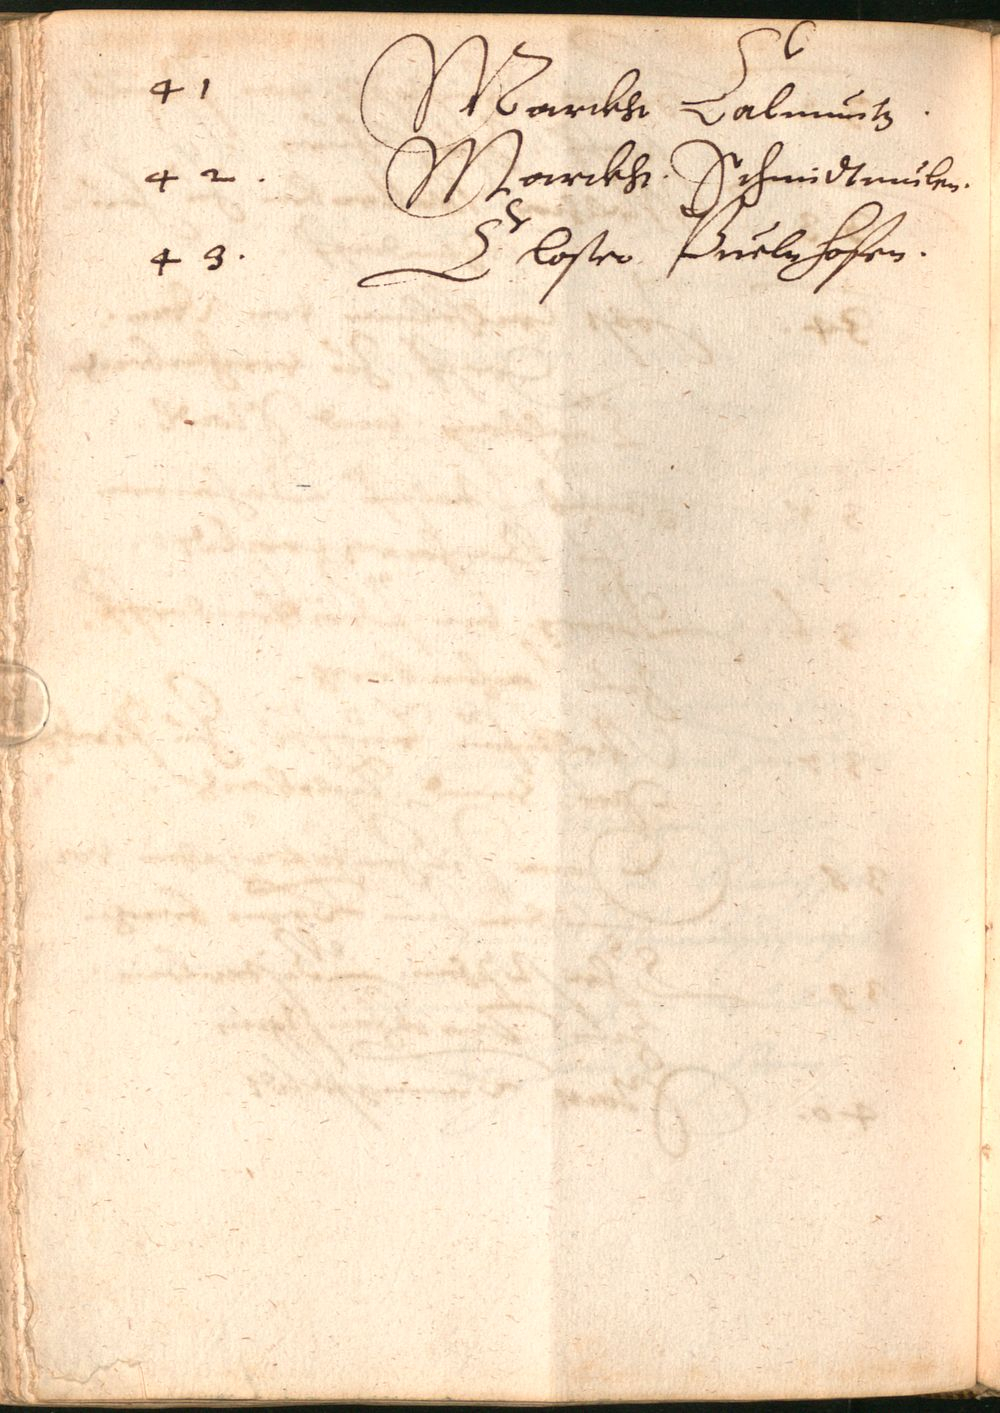 41 Marckht Calmüntz.
42. Marckht Schmidtmülen.
43. Closter Puelnhofen.